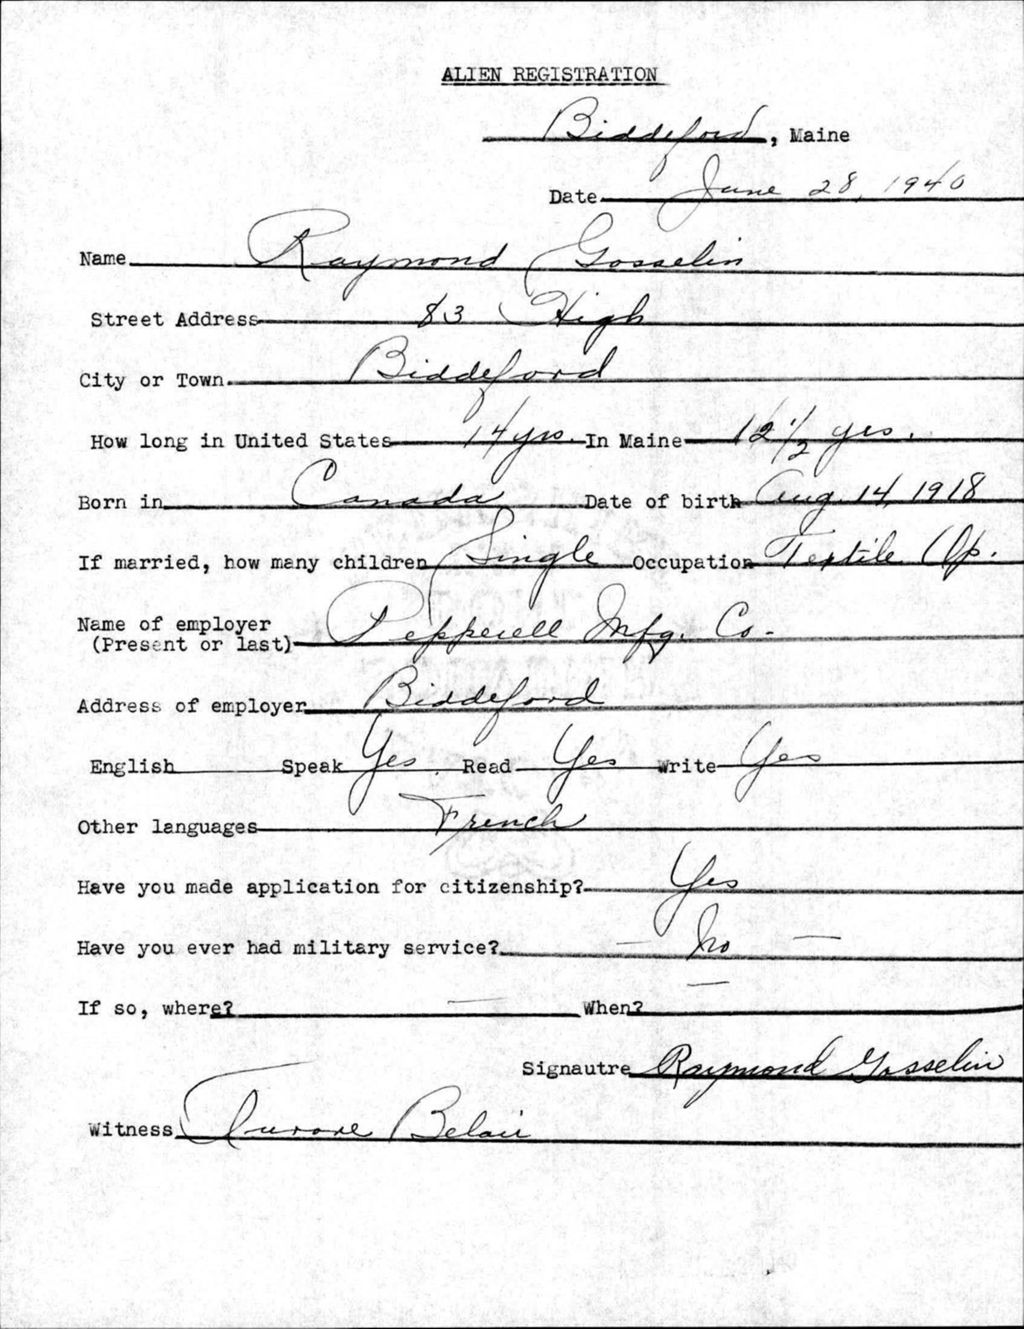 ALIEN REGISTRATION
Biddeford, Maine
Date June 28, 1940
Name Raymond Gosselin
Street Address 83 High
City or Town Biddeford
How long in United States 14 yrs. In Maine 12 1/2 yrs.
Born in Canada Date of birth Aug. 14, 1918
If married, how many children Single Occupation Textile Op.
Name of employer
(Present or last) Pepperell Mfg. Co.
Address of employer Biddeford
English Speak Yes. Read Yes Write Yes
Other languages French
Have you made application for citizenship? Yes
Have you ever had military service? — No —
If so, where? — When? —
Signautre Raymond Gosselin
Witness Aurore Belair